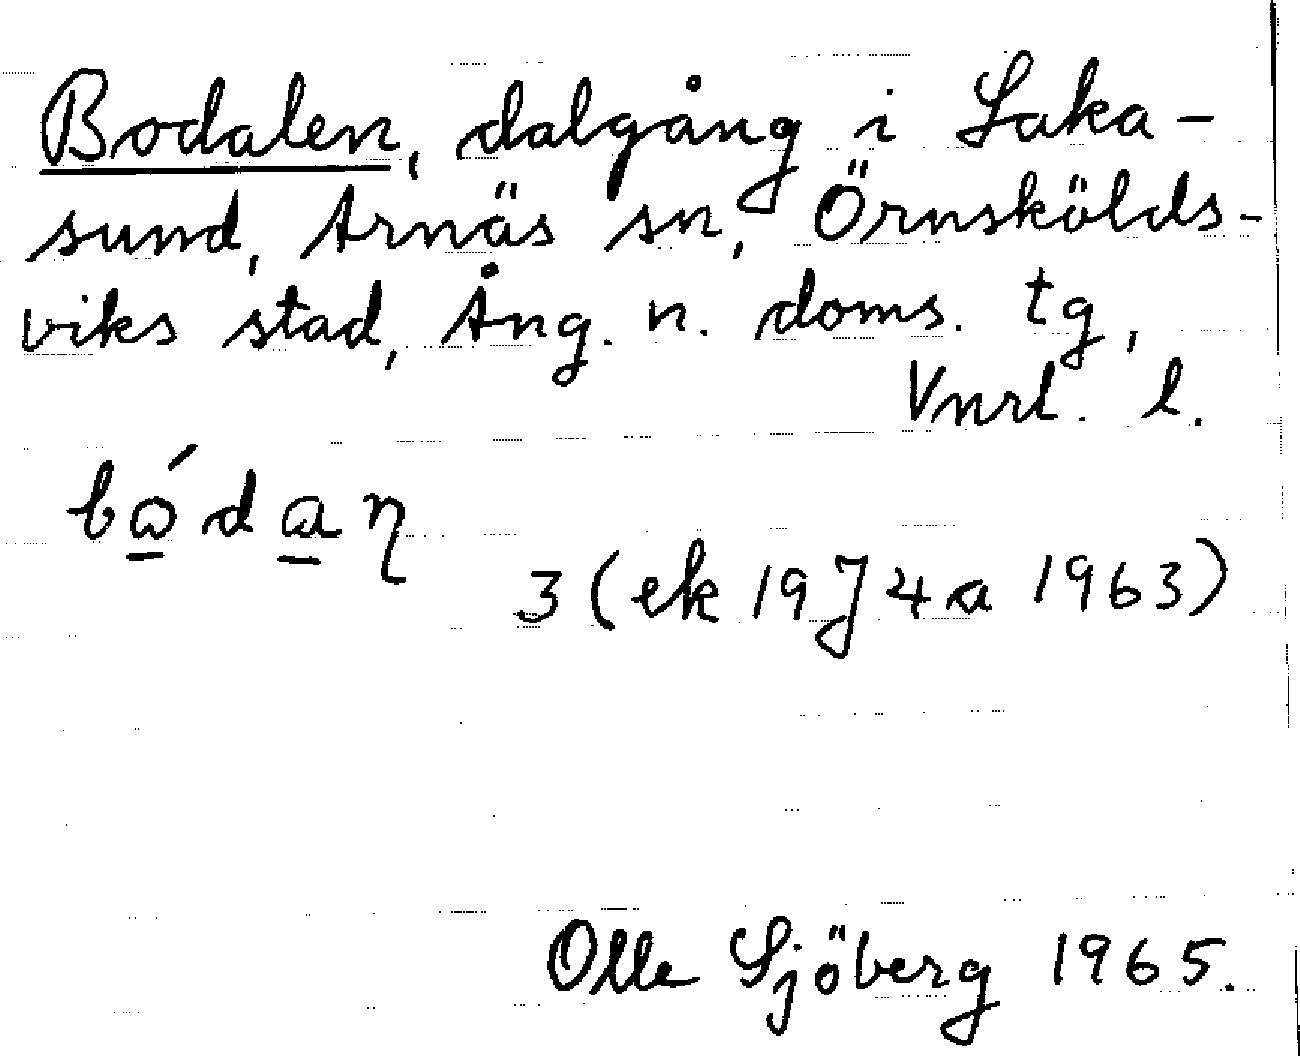 Bodalen, dalgång i Laka-
sund, Arnäs sn, Örnskölds-
viks stad, Ång. n. doms. tg,
Vnrl. l.
bódaη
3 (ek 19J 4a 1963)
Olle Sjöberg 1965.